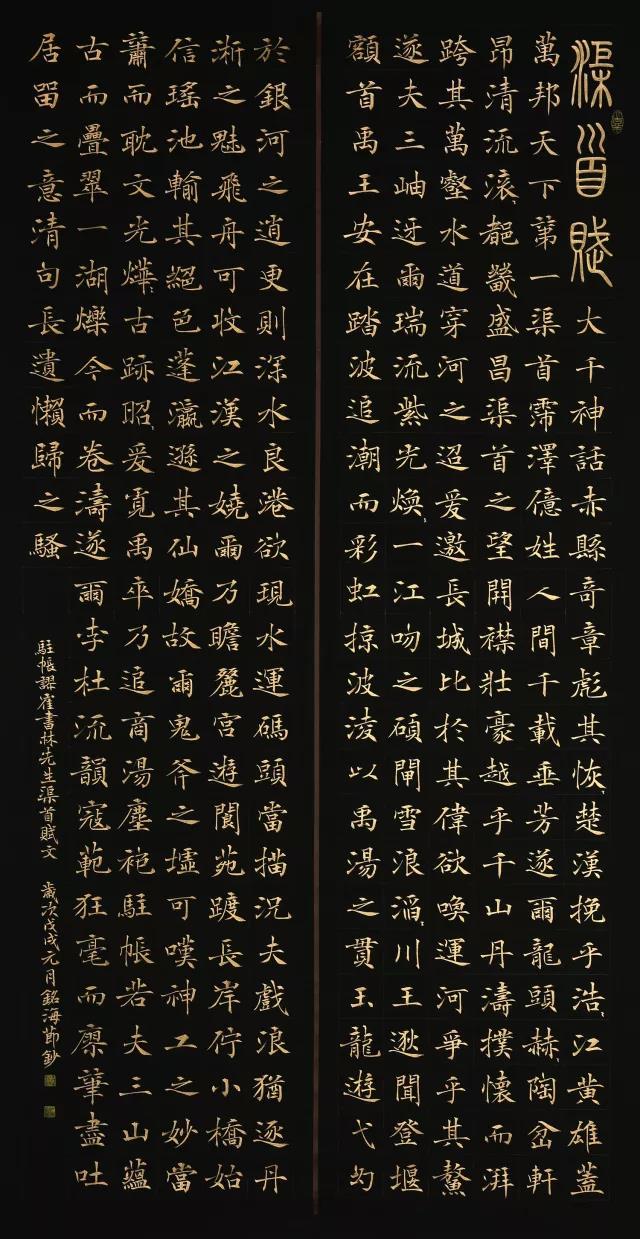 渠首賦
大千神話赤縣奇章彪其恢〻楚漢挽乎浩〻江黃雄蓋
萬邦天下第一渠首霈澤億姓人間千載垂芳遂爾龍頭赫〻陶岔軒
昂清流滾〻靘畿盛昌渠首之望開襟壯豪越乎千山丹濤撲懷而湃
跨其萬壑水道穿河之迢爰邀長城比於其偉欲喚運河爭乎其鰲
遂夫三岫迓爾瑞流紫光煥〻一江吻之碩閘雪浪滔〻川王逖聞登堰
額首禹王安在踏波追潮而彩虹掠波凌以禹湯之貫玉龍遊弋幻
於銀河之逍更則深水良港欲現水運碼頭當描況夫戲浪猶逐丹
淅之魅飛舟可收江漢之嬈爾乃瞻麗宮遊閬苑踱長岸佇小橋始
信瑤池輸其絕色蓬瀛遜其仙嬌故爾鬼斧之墟可嘆神工之妙當
蕭而耽文光燁〻古跡昭〻爰覓禹乃追商湯塵袍駐帳若夫三山蘊
古而疊翠一湖爍今而卷濤遂爾李杜流韻寇範狂毫而廩筆盡吐
居留之意清句長遺懶歸之騷
駐帳謬崔書林先生渠首賦文 歲次戊戌元月銘海節鈔